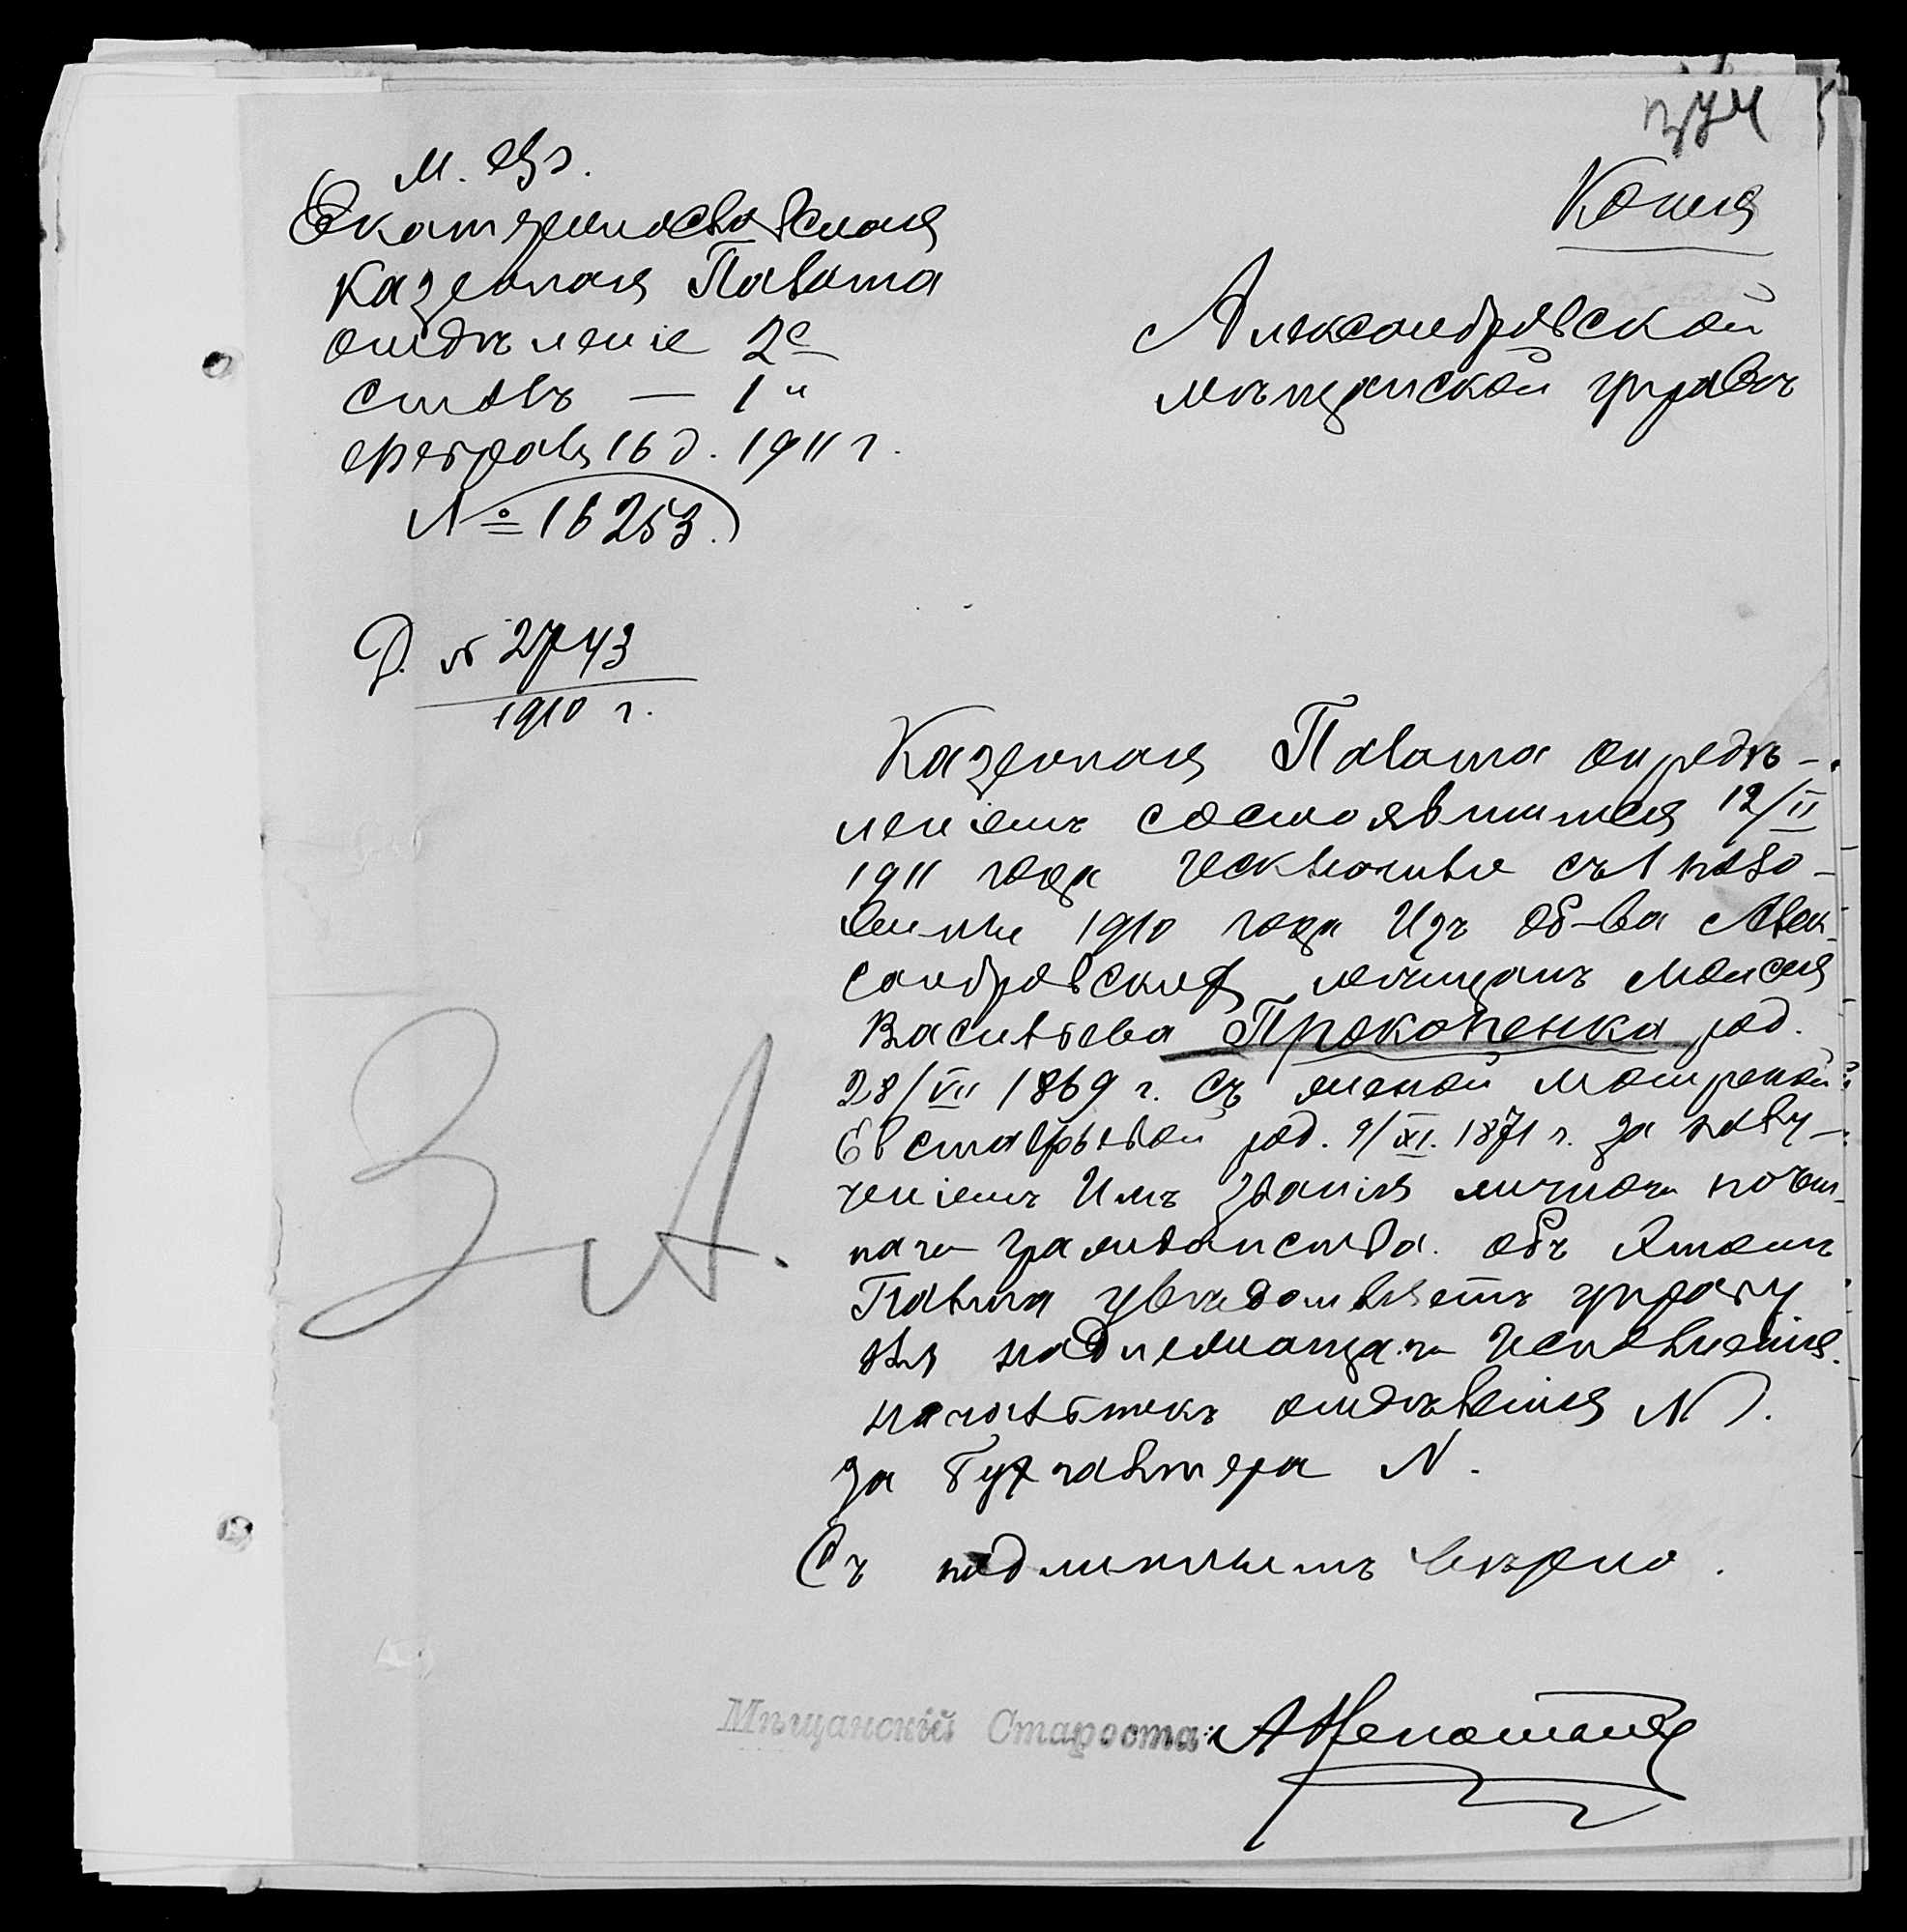 374
Копия
М. Ф.
Екатеринославская
Казенная Палата
отдѣленіе 2е
столъ — 1й
февраля 16 д. 1911 г.
№ 16253.
Александровской
мѣщанской управѣ
Д. № 2743
1910 г.
Казенная Палата опредѣ-
леніемъ состоявшимся 12/II
1911 года исключила съ 1 поло-
вины 1910 года Изъ об-ва Алек-
сандровскихъ мѣщанъ Моисея
Васильева Прокопенка род.
28/VII 1869 г. Съ женой Мотреной
Евстафьевой род. 9/XI. 1871 г. за полу-
ченіемъ Имъ званія личнаго почет-
наго гражданства. Объ этомъ
Палата увѣдомляетъ управу
для надлежащаго исполненія.
Начальникъ отдѣленія N.
За бухгалтера N.
Съ подлиннымъ вѣрно.
З А.
Мѣщанскій Староста: